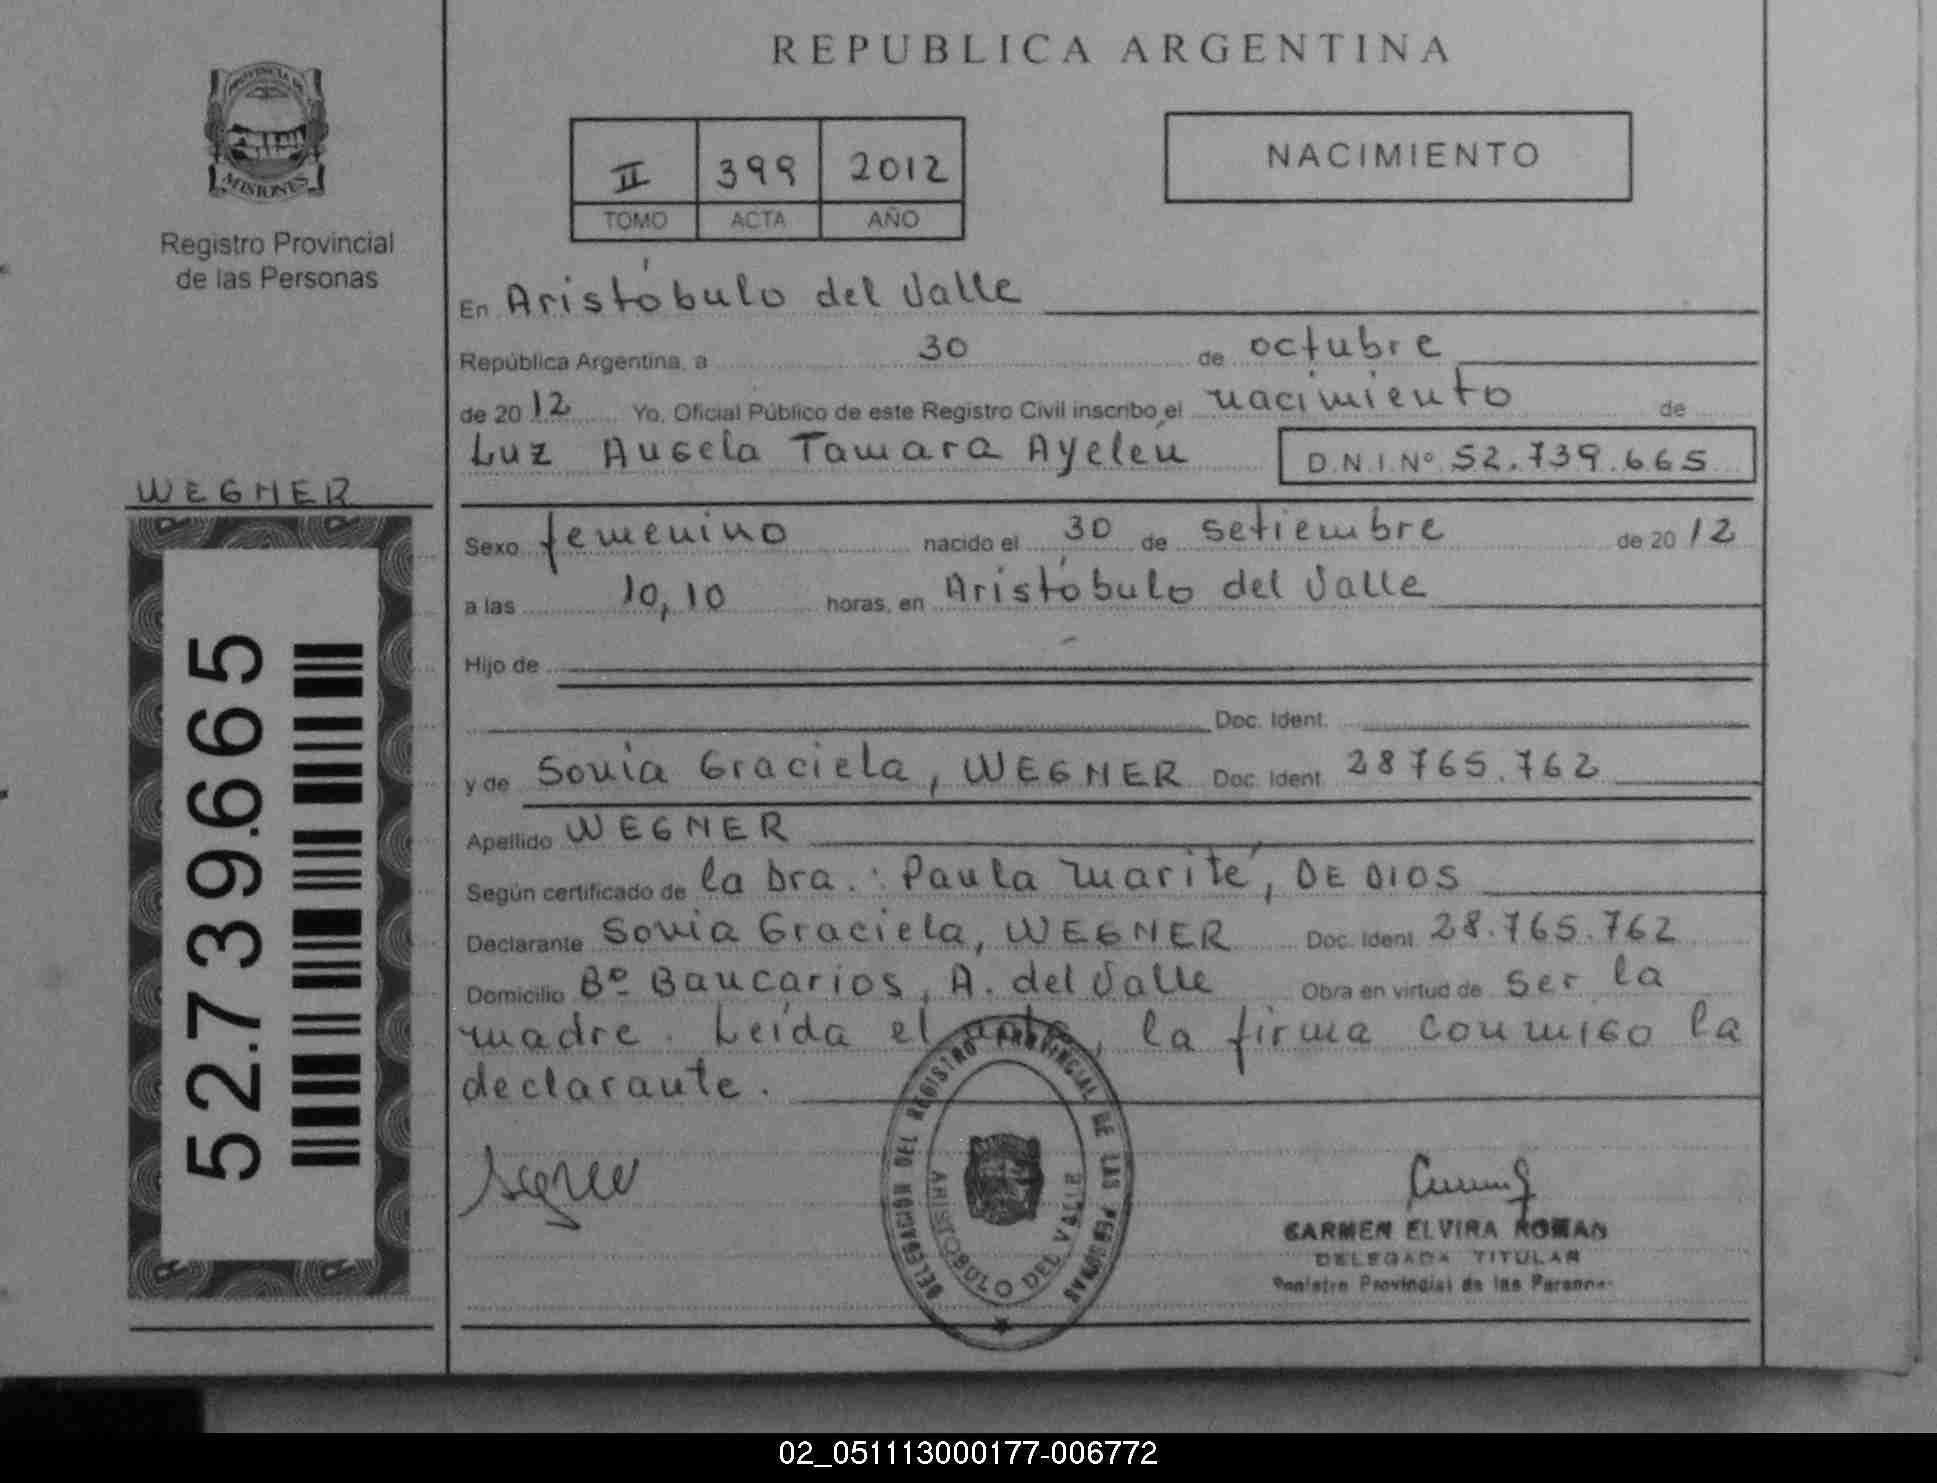 REPUBLICA ARGENTINA
PROVINCIA DE
MISIONES
Registro Provincial
de las Personas
II 399 2012
TOMO ACTA AÑO
NACIMIENTO
En Aristóbulo del Valle
República Argentina, a 30 de octubre
de 2012 Yo, Oficial Público de este Registro Civil inscribo el nacimiento de
Luz Angela Tamara Ayelén D.N.I.Nº 52.739.665
WEGNER
52.739.665
Sexo femenino nacido el 30 de setiembre de 2012
a las 10,10 horas, en Aristóbulo del Valle
Hijo de
Doc. Ident.
y de Sonia Graciela, WEGNER Doc. Ident. 28765.762
Apellido WEGNER
Según certificado de la Dra.: Paula Marité, DE DIOS
Declarante Sonia Graciela, WEGNER Doc. Ident. 28.765.762
Domicilio Bº Bancarios, A. del Valle Obra en virtud de ser la
madre. Leída el acta, la firma conmigo la
declarante.
DELEGACIÓN DEL REGISTRO PROVINCIAL DE LAS PERSONAS
ARISTOBULO DEL VALLE
CARMEN ELVIRA ROMAN
DELEGADA TITULAR
Registro Provincial de las Personas
02_051113000177-006772